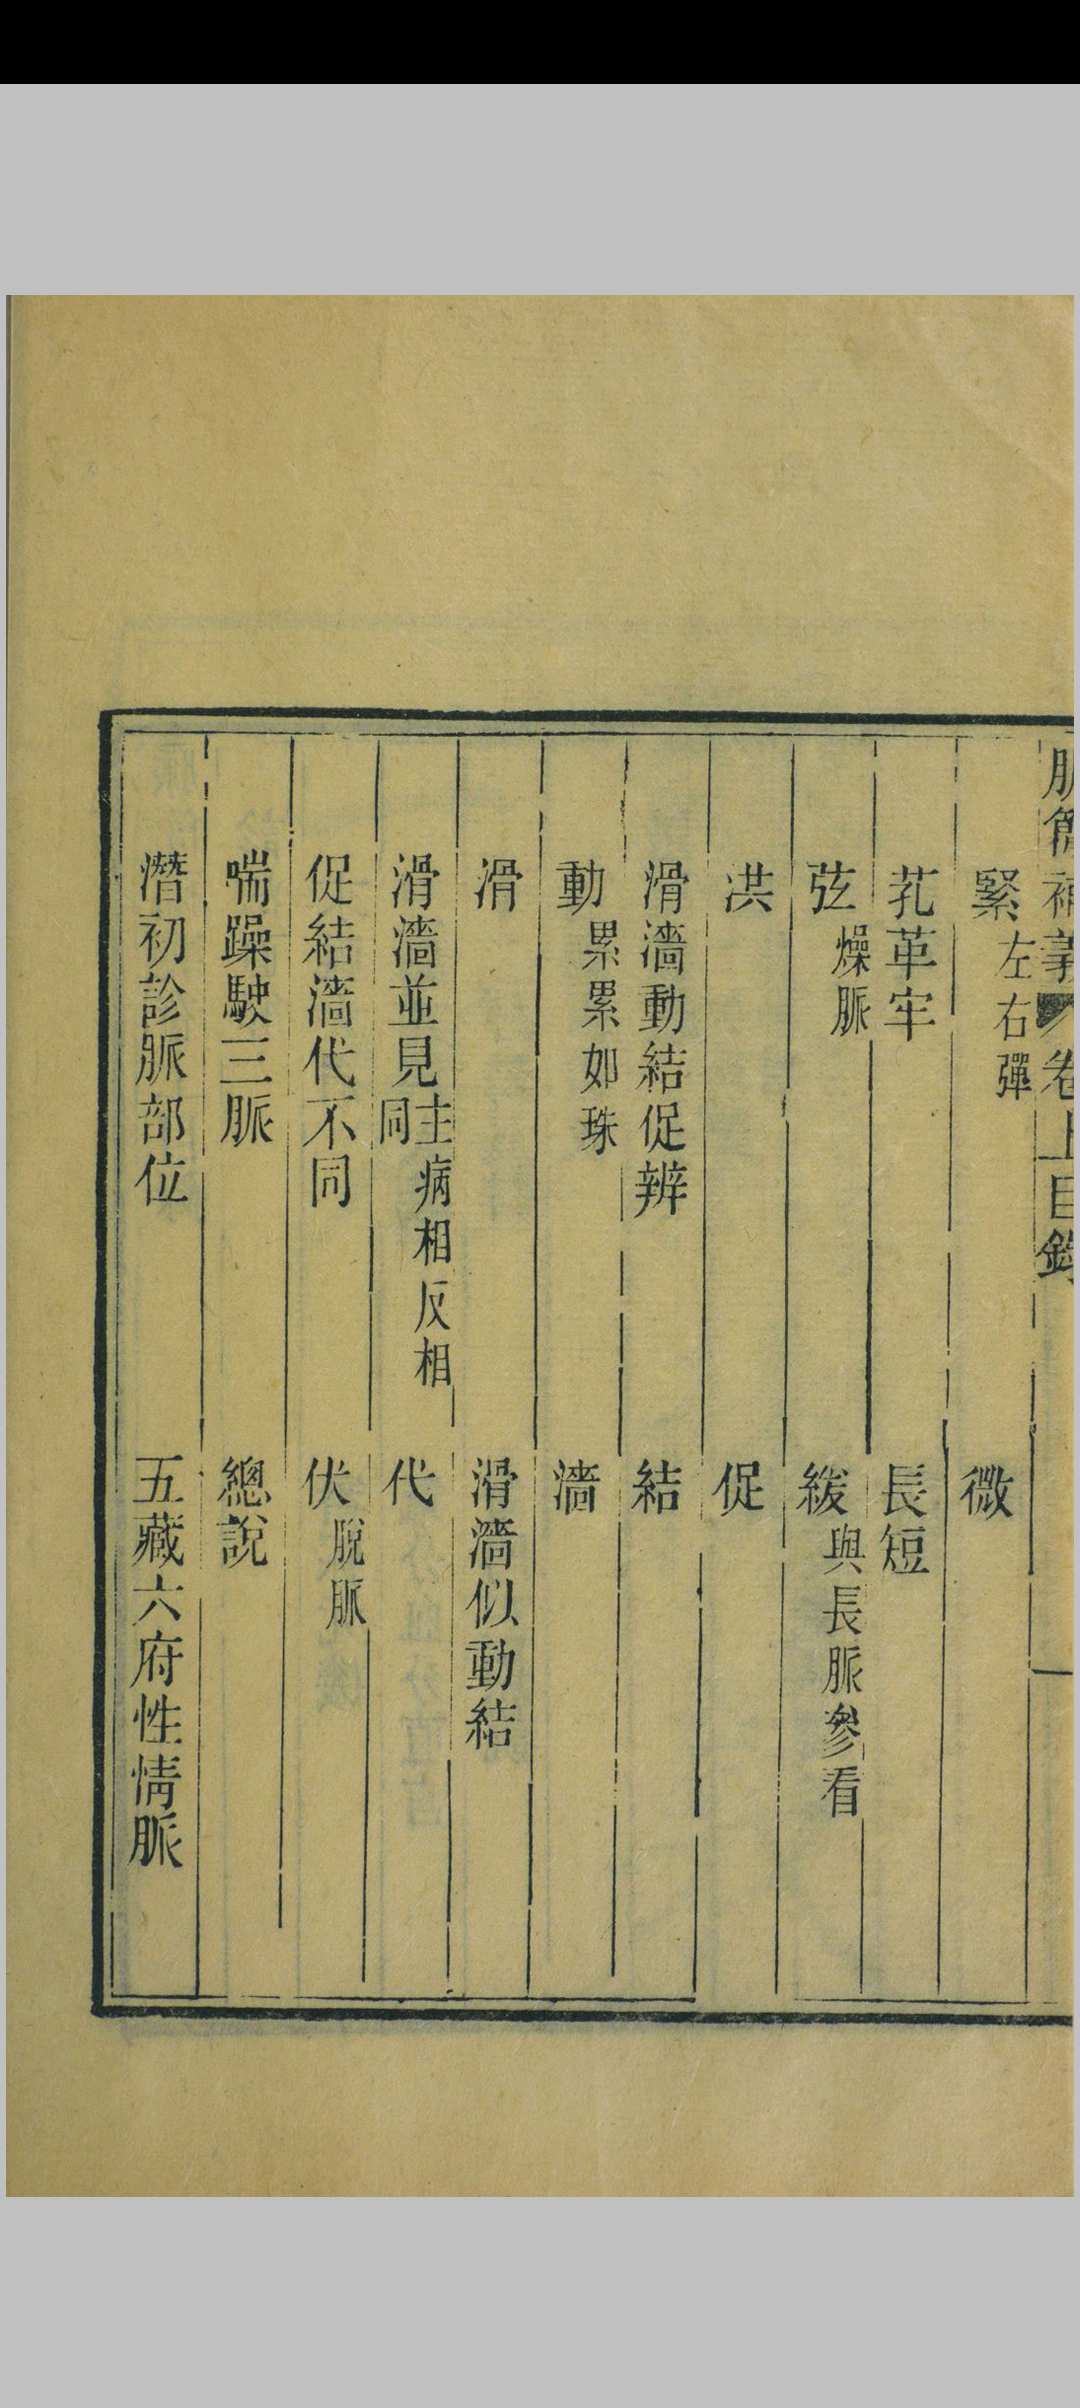 脈簡補義 卷上目錄 一
緊 左右彈 微
芤革牢 長短
弦 燥脈 緩 與長脈參看
洪 促
滑濇動結促辨 結
動 累累如珠 濇
滑 滑濇似動結
滑濇並見 主病相反相同 代
促結濇代不同 伏 脫脈
喘躁駛三脈 總說
潛初診脈部位 五藏六府性情脈